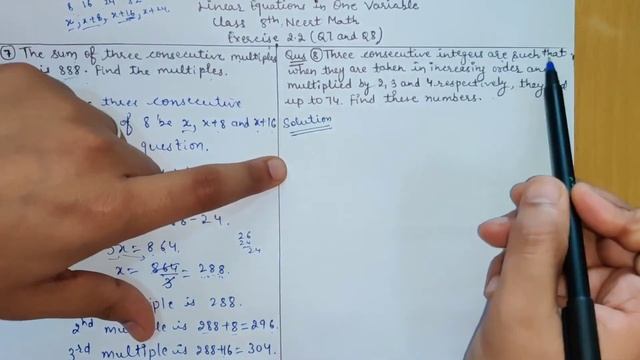 8 16 24 32
x, x+8, x+16, x+24
Linear Equations in One Variable
Class 8th Ncert Math
Exercise 2.2 (Q7 and Q8)
⑦ The sum of three consecutive multiples
is 888. Find the multiples.
three consecutive
of 8 be x, x+8 and x+16
question.
- 24.
3x = 864.
26
24
24
x = 864/3 = 288.
multiple is 288.
2nd multiple is 288+8 = 296.
3rd multiple is 288+16 = 304.
Qus ⑧ Three consecutive integers are such that
when they are taken in increasing order and
multiplied by 2, 3 and 4 respectively, they
up to 74. Find these numbers.
Solution